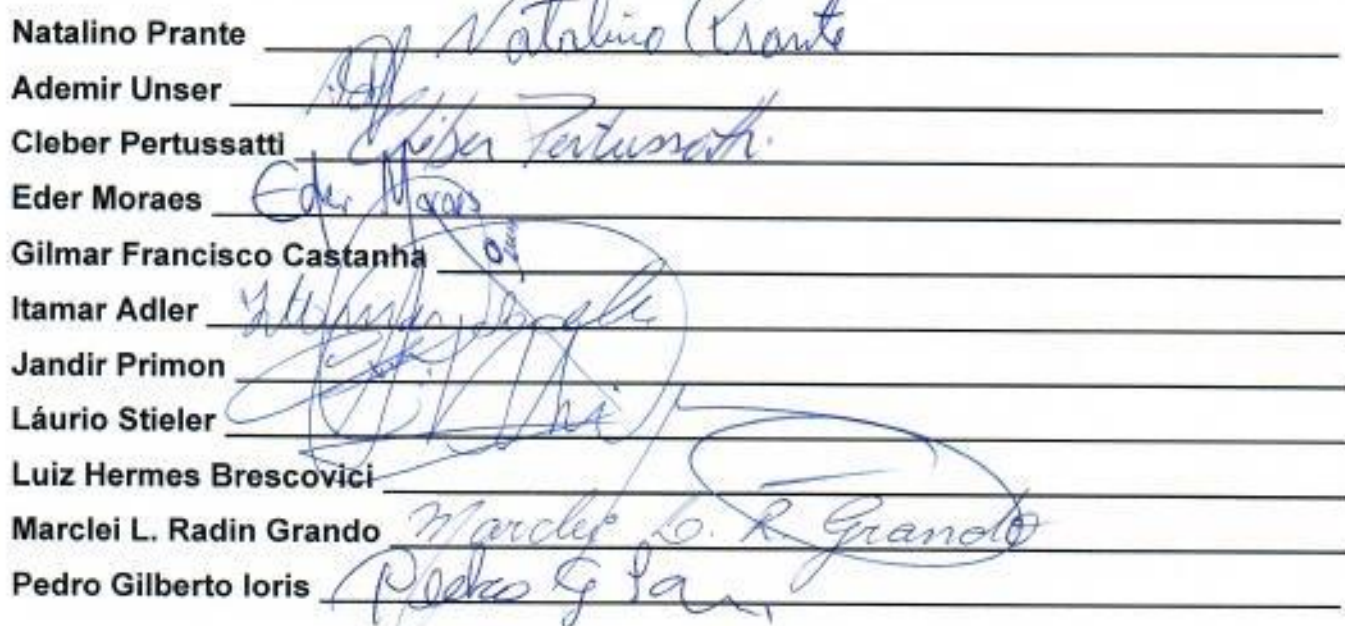 Natalino Prante Natalino Prante
Ademir Unser
Cleber Pertussatti Cleber Pertussatti
Eder Moraes Eder Moraes
Gilmar Francisco Castanha
Itamar Adler
Jandir Primon
Láurio Stieler
Luiz Hermes Brescovici
Marclei L. Radin Grando Marclei L. R. Grando
Pedro Gilberto Ioris Pedro G